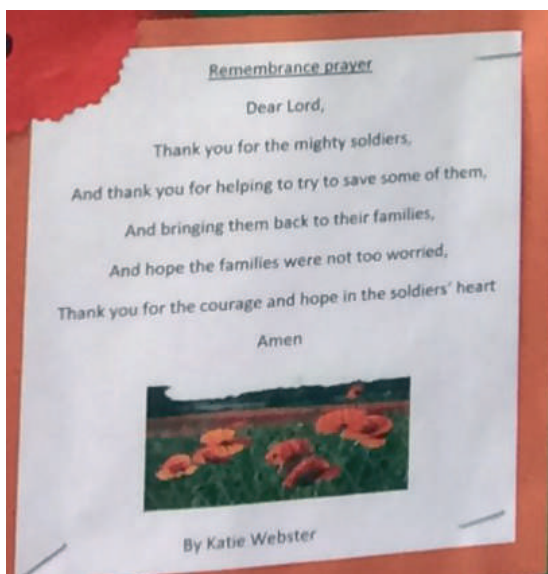 Remembrance prayer
Dear Lord,
Thank you for the mighty soldiers,
And thank you for helping to try to save some of them,
And bringing them back to their families,
And hope the families were not too worried,
Thank you for the courage and hope in the soldiers' heart
Amen
By Katie Webster